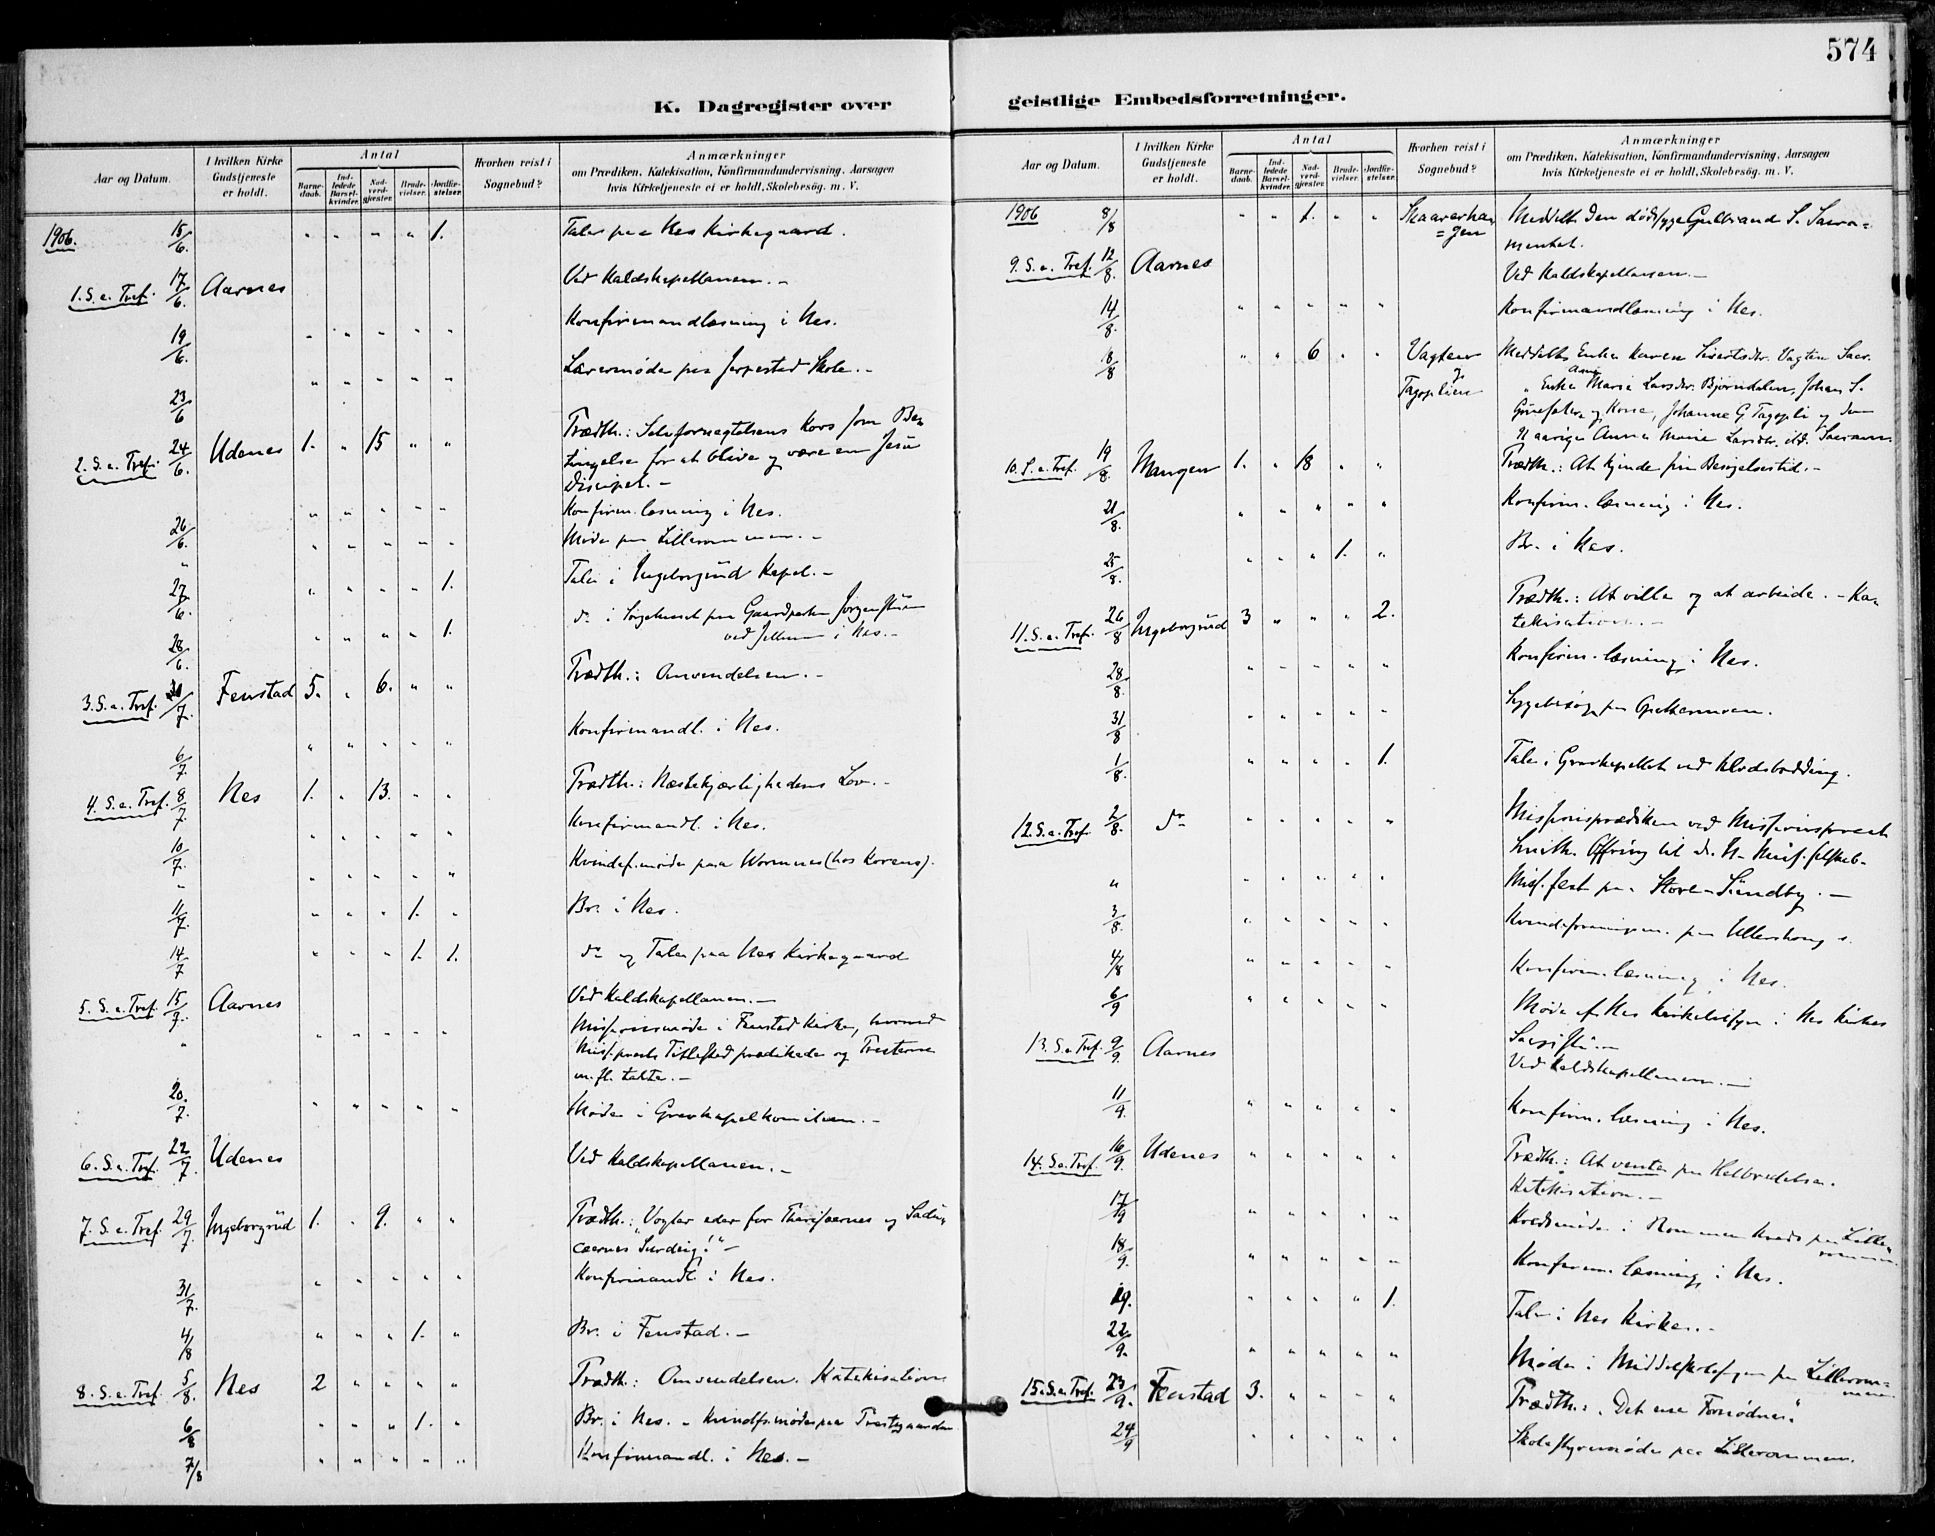 574
K. Dagregister over geistlige Embedsforretninger.
Aar og Datum. I hvilken Kirke Gudstjeneste er holdt. Antal Hvorhen reist i Sognebud? Anmærkninger
Barne-daab. Ind-ledede Barsel-kvinder. Nad-verd-gjester. Brude-vielser. Jordfæ-stelser. om Prædiken, Katekisation, Konfirmandundervisning, Aarsagen
hvis Kirketjeneste ei er holdt, Skolebesøg. m. V.
1906. 15/6. " " " " 1. Tale paa Nes Kirkegaard.
1. S. e. Tref. 17/6. Aarnes Ved Kaldskapellanen. –
19/6. " " " " " Konfirmandlæsning i Nes.
23/6 " " " " " Lærermøde paa Jerpestad Skole. –
2. S. e. Tref. 24/6. Udenes 1. " 15 " " Prædth.: Selvfornegtelsens Kors som Be-
tingelse for at blive og være en Jesu
Discipel. –
26/6. " " " " " Konfirm. læsning i Nes.
" " " " " " Møde paa Lillerommen. –
27/6. " " " " 1. Tale i Ingeborgrud Kapel. –
28/6. " " " " 1. do i Sørgehuset paa
i Nes. –
3. S. e. Tref. /7. Fenstad 5. " 6. " " Prædth.: Omvendelsen. –
6/7. " " " " " Konfirmandl. i Nes.
4. S. e. Tref. 8/7. Nes 1. " 13. " " Prædth.: Næstekjærlighedens Lov. –
10/7. " " " " " Konfirmandl. i Nes.
" " " " " " Kvindef.møde paa Wormnes (hos Korens).
11/7. " " " 1. " Br. i Nes.
14/7 " " " 1. 1. do og Tale paa Nes Kirkegaard
5. S. e. Tref. 15/7. Aarnes Ved Kaldskapellanen. –
" " " " " Missionsmøde i Fenstad Kirke, hvorved
Miss.prest prædikede og Presterne
m. fl. talte. –
20./7. " " " " " Møde i Gravkapelkomiteen. –
6. S. e. Tref. 22/7. Udenes Ved Kaldskapellanen. –
7. S. e. Tref. 29/7. Ingeborgrud 1. " 9. " " Prædth.: "Vogter eder for Farisæernes og Sadu-
cæernes Surdeig!" –
31/7. " " " " " Konfirmandl. i Nes.
4/8 " " " 1. " Br. i Fenstad. –
8. S. e. Tref. 5/8. Nes 2 " " " " Prædth.: Omvendelsen. Katekisation
6/8 " " " 1. " Br. i Nes. – Kvindef.møde paa Prestegaarden
7/8 " " " " " Konfirmandl. i Nes. –
Aar og Datum. I hvilken Kirke Gudstjeneste er holdt. Antal Hvorhen reist i Sognebud? Anmærkninger
Barne-daab. Ind-ledede Barsel-kvinder. Nad-verd-gjester. Brude-vielser. Jordfæ-stelser. om Prædiken, Katekisation, Konfirmandundervisning, Aarsagen
hvis Kirketjeneste ei er holdt, Skolebesøg. m. V.
1906 8/8 " " 1. " " Skaarerha-
=gen Meddelt den dødssyge Gulbrand S. Sacra=
mentet.
9. S. e. Tref. 12/8. Aarnes Ved Kaldskapellanen. –
14/8. " " " " " Konfirmandlæsning i Nes.
/8 " " 6 " " Vagten
og
Tagoplien Meddelt Enke Karen Sivertsdtr. Vagten Sacr.
" Enke Ane Marie Larsdtr. Bjørndalen, Johan S.
og Kone, Johanne G Tagopli og den
11 aarige Anna Marie Larsdtr. ibd. Sacram.
10. S. e. Tref. 19/8. Mangen 1. " 18 " " Prædth.: At kjende sin Besøgelsestid. –
21/8. " " " " " Konfirm. læsning i Nes.
25/8. " " " 1. " Br. i Nes.
11. S. e. Tref. 26/8 Ingeborgrud 3 " " " 2. Prædth.: At ville og at arbeide. – Ka-
tekisation. –
28/8. " " " " " Konfirm. læsning i Nes.
31/8 " " " " " Sygebesøg paa
1/8. " " " " 1. Tale i Gravkapellet ved
12. S. e. Tref. 2/8. do " " " " " Missionsprædiken ved Missionsprest
Offring til d. N. Miss.selskab –
" " " " " " Miss.fest paa Store-Sundby. –
3/8. " " " " " Kvindeforeningen. paa
4/8 " " " " " Konfirm. læsning i Nes.
6/9 " " " " " Møde af Nes Kirketilsyn i Nes Kirkes
Sacristi. –
13. S. e. Tref. 9/9. Aarnes Ved Kaldskapellanen. –
11/9. " " " " " Konfirm. læsning i Nes.
14. S. e. Tref. 16/9. Udenes " " " " " Prædth.: At vente paa Helbredelse.
Katekisation. –
17/9 " " " " " Kredsmøde i Rommen Kreds paa Lille-
rommen.
18/9. " " " " " Konfirm. læsning i Nes.
19. " " " " 1. Tale i Nes Kirke. –
22/9. " " " " " Møde i Middelskoletilsyn paa Lillerom-
men
15. S. e. Tref. 23/9. Fenstad 3. " " " " Prædth.: "Det ene Fornødne."
24/9 " " " " " Skolestyremøde paa Lillerommen.